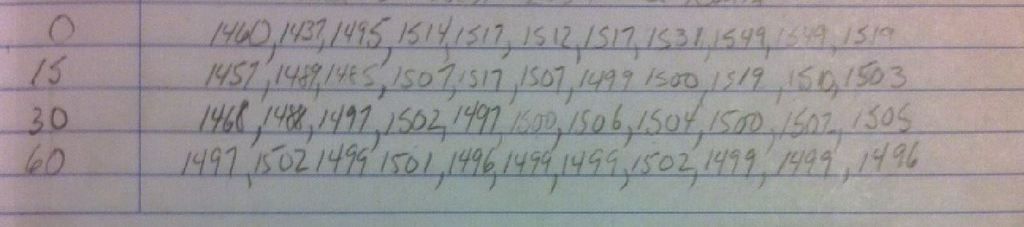 0 1460, 1437, 1495, 1514, 1517, 1512, 1517, 1531, 1549, 1549, 1519
15 1457, 1489, 1485, 1507, 1517, 1507, 1499 1500, 1519, 1510, 1503
30 1468, 1488, 1497, 1502, 1497, 1500, 1506, 1504, 1500, 1502, 1505
60 1497, 1502 1499 1501, 1496, 1499, 1499, 1502, 1499, 1499, 1496